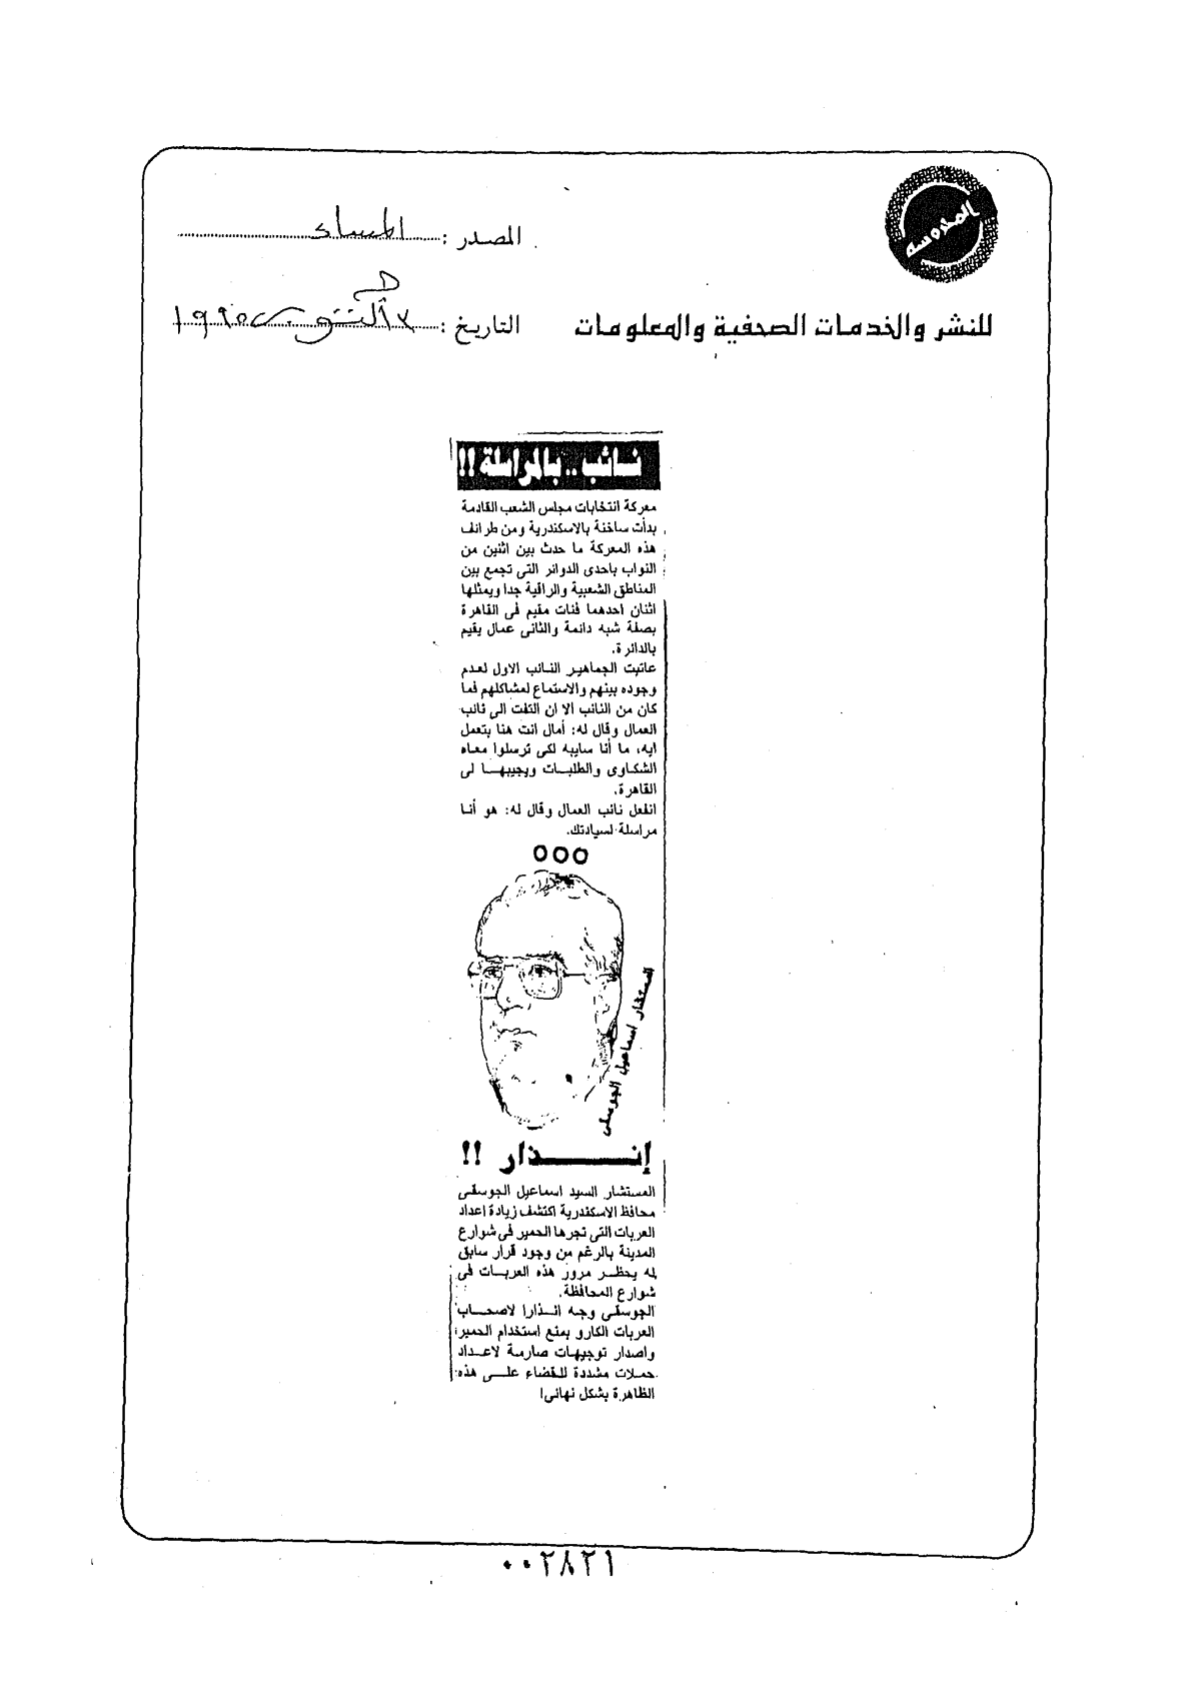 المحروسه
المصدر : المساء
للنشر والخدمات الصحفية والمعلومات
التاريخ : أكتوبر ١٩٩٥
نائب .. بالمراسلة !!
معركة انتخابات مجلس الشعب القادمة
بدأت ساخنة بالاسكندرية ومن طرائف
هذه المعركة ما حدث بين اثنين من
النواب باحدى الدوائر التى تجمع بين
المناطق الشعبية والراقية جدا ويمثلها
اثنان احدهما فئات مقيم فى القاهرة
بصفة شبه دائمة والثانى عمال يقيم
بالدائرة.
عاتبت الجماهير النائب الاول لعدم
وجوده بينهم والاستماع لمشاكلهم فما
كان من النائب الا ان التفت الى نائب
العمال وقال له: أمال انت هنا بتعمل
ايه، ما أنا سايبه لكى ترسلوا معاه
الشكاوى والطلبات ويجيبها لى
القاهرة.
انفعل نائب العمال وقال له: هو أنا
مراسلة لسيادتك.
المستشار اسماعيل الجوسقى
إنـــذار !!
المستشار السيد اسماعيل الجوسقى
محافظ الاسكندرية اكتشف زيادة اعداد
العربات التى تجرها الحمير فى شوارع
المدينة بالرغم من وجود قرار سابق
له يحظر مرور هذه العربات فى
شوارع المحافظة.
الجوسقى وجه انذارا لاصحاب
العربات الكارو بمنع استخدام الحمير
واصدار توجيهات صارمة لاعداد
حملات مشددة للقضاء على هذه
الظاهرة بشكل نهائى!
٠٠٢٨٢١